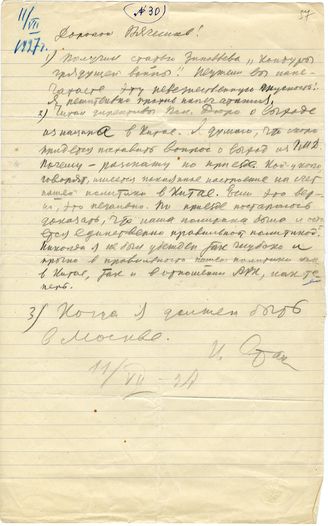 № 30
37
11/VII 1927 г.
Дорогой Вячеслав!
1) Получил статью Зиновьева „Контуры
грядущей войны". Неужели вы напе-
чатаете эту невежественную
Я решительно против напечатания.
2) Читал директивы Пол. Бюро о выходе
из нацпр-ва в Китае. Я думаю, что скоро
придется поставить вопрос о выходе из ГМД.
Почему – расскажу по приезде. Кой-у-кого
говорят, имеется покаянное настроение на счет
нашей политики в Китае. Если это вер-
но, это печально. По приезде постараюсь
доказать, что наша политика была и оста-
ется единственно правильной политикой.
Никогда я не был убежден так глубоко и
прочно в правильности нашей политики как
в Китае, так и в отношении АРК, как те-
перь.
3) Когда я должен быть
в Москве.
И. Стал
11/VII – 27